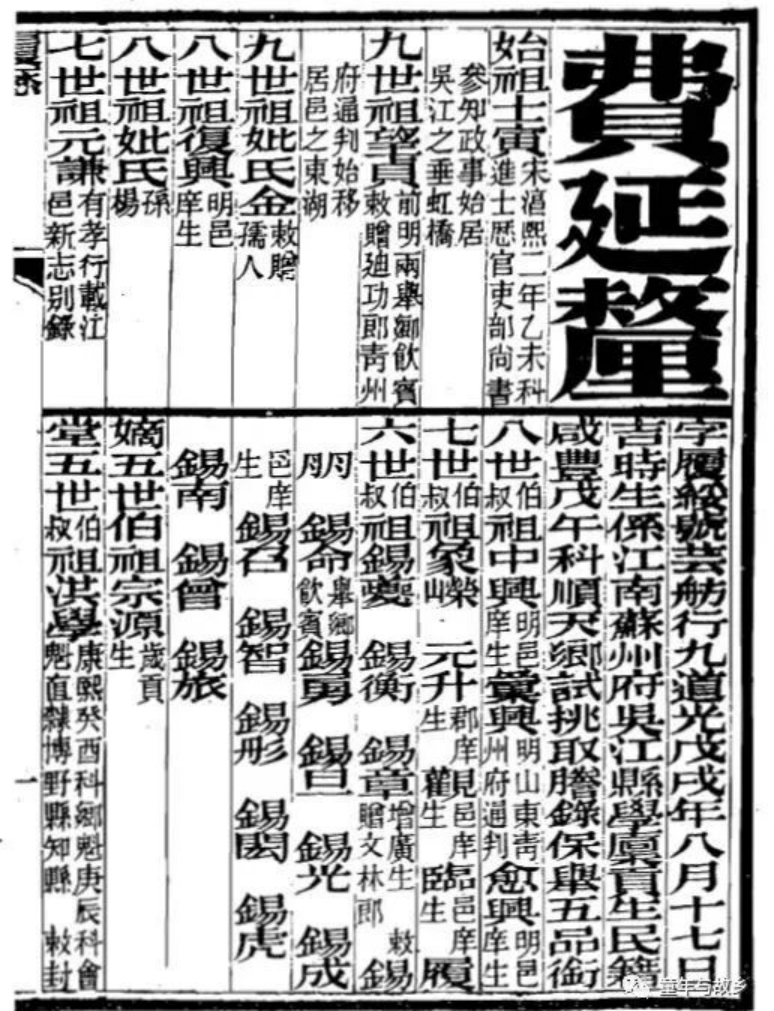 費延釐
始祖士寅宋淳熙二年乙未科進士歷官吏部尚書
參知政事始居吳江之垂虹橋
九世祖望貢前明兩舉鄉飲賓敕贈廸功郎青州
府通判始移居邑之東湖
九世祖妣氏金敕贈孺人
八世祖復興明邑庠生
八世祖妣氏孫楊
七世祖元謙有孝行載江邑新志別錄
字履 號芸舫行九道光戊戌年八月十七日
吉時生係江南蘇州府吳江縣學廩貢生民籍
咸豐戊午科順天鄉試挑取謄錄保舉五品銜
八世伯叔祖中興明邑庠生 彙興明山東青州府通判 愈興明邑庠生
七世伯叔祖象嶸 元升郡庠生 觀邑庠生 臨邑庠生 履
六世伯叔祖錫夔 錫衡 錫章增廣生敕贈文林郎 錫
錫命舉鄉飲賓 錫勇 錫旦 錫光 錫成
邑庠生 錫召 錫智 錫形 錫閎 錫虎
錫南 錫曾 錫旅
嫡五世伯祖宗源歲貢生
堂五世伯叔祖洪學康熙癸酉科鄉魁庚辰科會魁直隸博野縣知縣敕封
一
童年与故乡